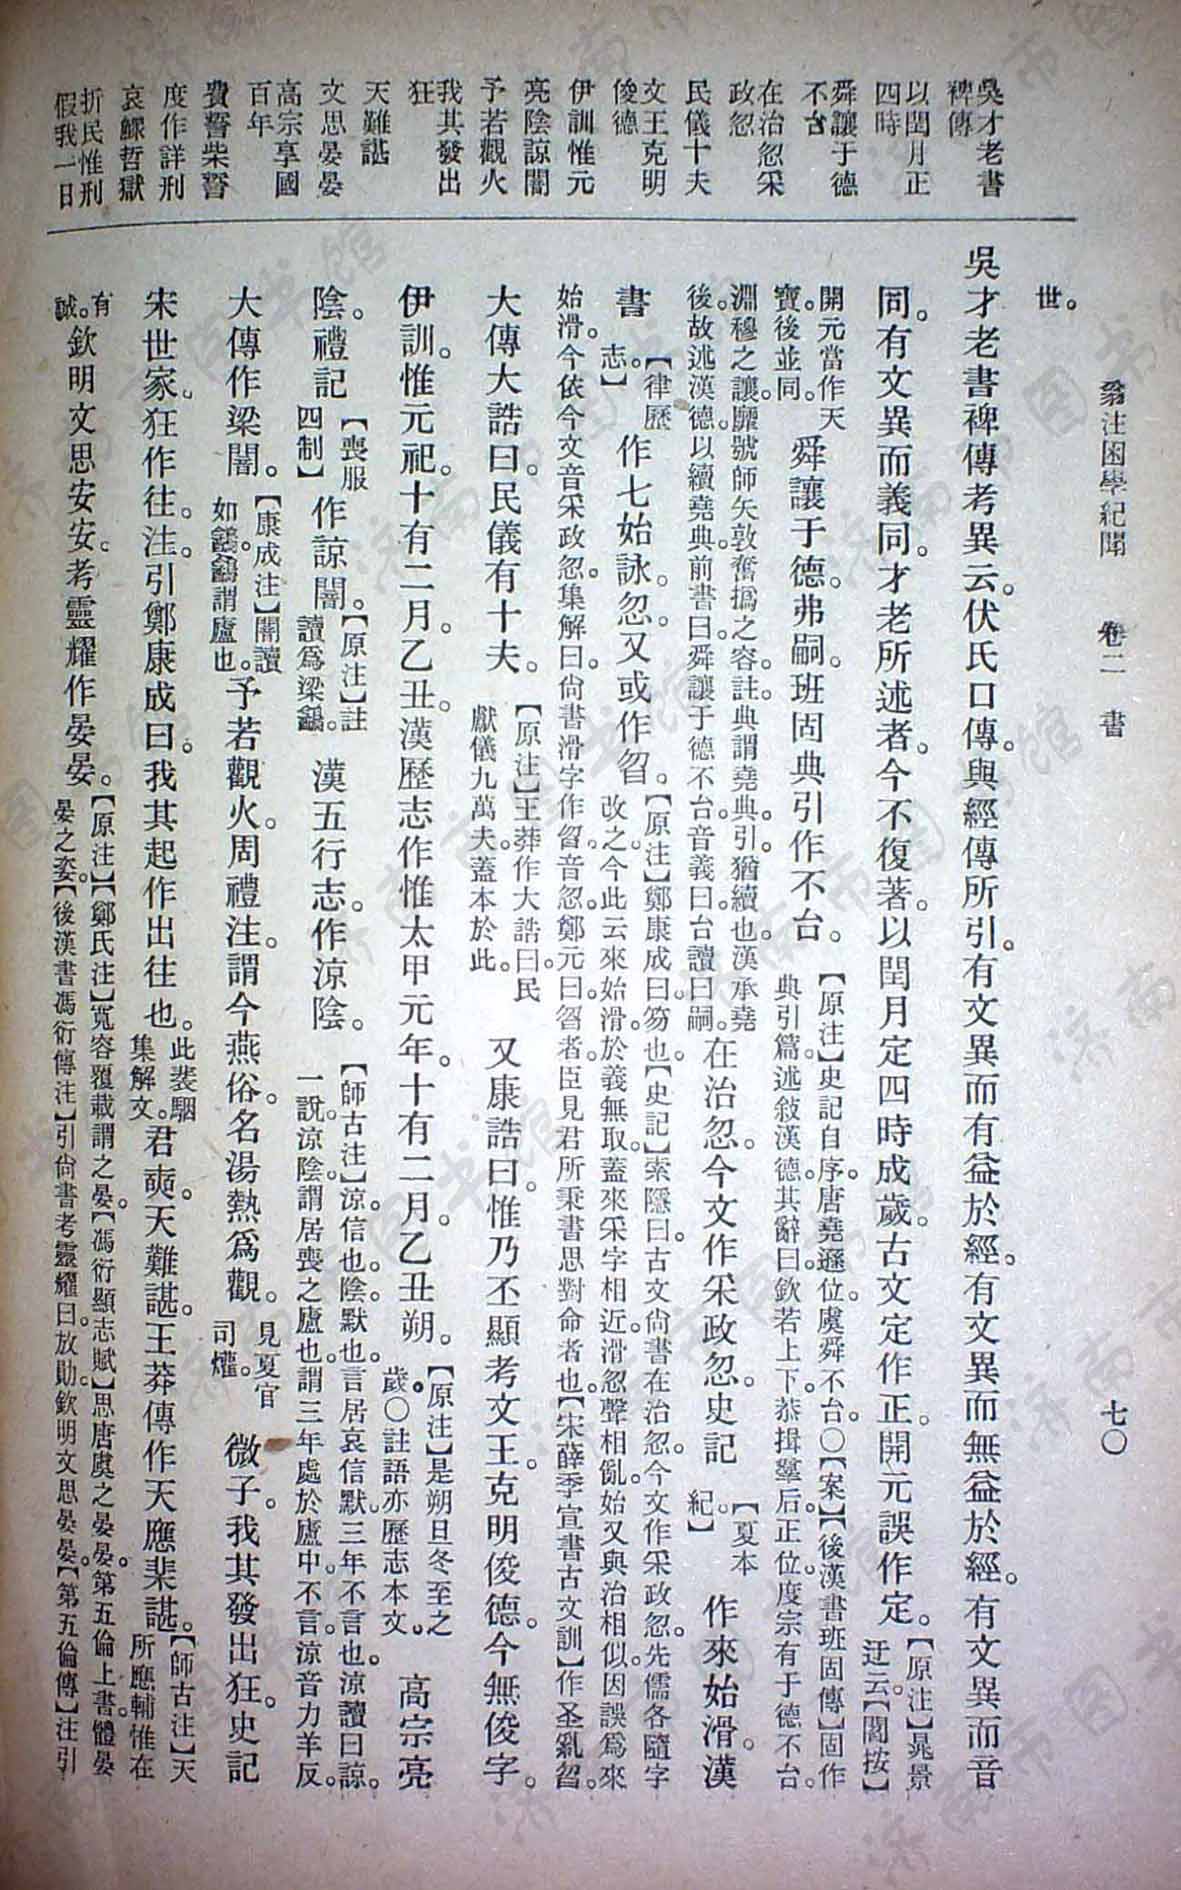 翁注困學紀聞 卷二 書 七〇
吳才老書
裨傳
以閏月正
四時
舜讓于德
不台
在治忽采
政忽
民儀十夫
文王克明
俊德
伊訓惟元
亮陰諒闇
予若觀火
我其發出
狂
天難諶
文思晏晏
高宗享國
百年
費誓柴誓
度作詳刑
哀鰥哲獄
折民惟刑
假我一日
世。
吳才老書裨傳考異云。伏氏口傳。與經傳所引。有文異而有益於經。有文異而無益於經。有文異而音
同。有文異而義同。才老所述者。今不復著。以閏月定四時成歲。古文定作正。開元誤作定。【原注】晁景
迂云。【閻按】
開元當作天
寶。後並同。舜讓于德。弗嗣。班固典引作不台。【原注】史記自序。唐堯遜位。虞舜不台。〇【案】【後漢書班固傳】固作
典引篇。述敍漢德。其辭曰。欽若上下。恭揖羣后。正位。度宗有于德不台。
淵穆之讓。靡號師矢敦奮撝之容。註。典謂堯典。引。猶續也。漢承堯
後。故述漢德。以續堯典。前書曰。舜讓于德不台。音義曰。台讀曰嗣。在治忽。今文作采政忽。史記【夏本
紀。】作來始滑。漢
書【律歷
志。】作七始詠。忽。又或作曶。【原注】鄭康成曰。笏也。【史記】索隱曰。古文尙書在治忽。今文作采政忽。先儒各隨字
改之。今此云來始滑。於義無取。蓋來采字相近。滑忽聲相亂。始又與治相似。因誤爲來
始滑。今依今文音采政忽。集解曰。尙書滑字作曶。音忽。鄭元曰。曶者。臣見君所秉書思對命者也。【宋薛季宣書古文訓】作𡉄亂曶。
大傳大誥曰。民儀有十夫。【原注】王莽作大誥曰。民
獻儀九萬夫。蓋本於此。又康誥曰。惟乃丕顯考文王。克明俊德。今無俊字。
伊訓。惟元祀十有二月。乙丑。漢歷志作惟太甲元年。十有二月。乙丑朔。【原注】是朔旦冬至之
歲。〇註語亦歷志本文。高宗亮
陰。禮記【喪服
四制】作諒闇。【原注】註
讀爲梁鶴。漢五行志。作涼陰。【師古注】涼。信也。陰。默也。言居哀信默。三年不言也。涼讀曰諒。
一說。涼陰。謂居喪之廬也。謂三年處於廬中。不言。涼音力羊反。
大傳作梁闇。【康成注】闇讀
如鶴。鶴謂廬也。予若觀火。周禮注。謂今燕俗。名湯熱爲觀。見夏官
司爟。微子。我其發出狂。史記
宋世家。狂作往。注。引鄭康成曰。我其起作出往也。此裴駰
集解文。君奭。天難諶。王莽傳作天應棐諶。【師古注】天
所應輔惟在
有
誠。欽明文思安安。考靈耀作晏晏。【原注】【鄭氏注】寬容覆載謂之晏。【馮衍顯志賦】思唐虞之晏晏。第五倫上書。體晏
晏之姿。【後漢書馮衍傳注】引尙書考靈耀曰。放勛。欽明文思晏晏。【第五倫傳】注引